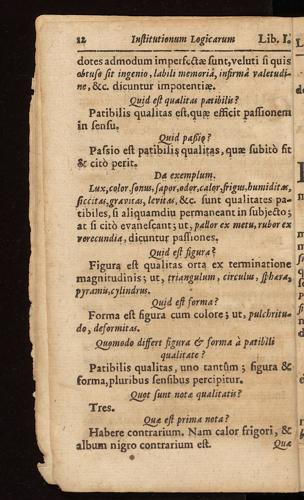 12 Institutionum Logicarum Lib. I.
dotes admodum imperfectæ sunt, veluti si quis
obtuso sit ingenio, labili memoriâ, infirmâ valetudi-
ne, &c. dicuntur impotentiæ.
Quid est qualitas patibilis?
Patibilis qualitas est, quæ efficit passionem
in sensu.
Quid passio?
Passio est patibilis qualitas, quæ subitò fit
& citò perit.
Da exemplum.
Lux, color, sonus, sapor, odor, calor, frigus, humiditas,
siccitas, gravitas, levitas, &c. sunt qualitates pa-
tibiles, si aliquamdiu permaneant in subjecto;
at si citò evanescant; ut, pallor ex metu, rubor ex
verecundia, dicuntur passiones.
Quid est figura?
Figura est qualitas orta ex terminatione
magnitudinis; ut, triangulum, circulus, sphæra,
pyramis, cylindrus.
Quid est forma?
Forma est figura cum colore; ut, pulchritu-
do, deformitas.
Quomodo differt figura & forma à patibili
qualitate?
Patibilis qualitas, uno tantùm; figura &
forma, pluribus sensibus percipitur.
Quot sunt notæ qualitatis?
Tres.
Quæ est prima nota?
Habere contrarium. Nam calor frigori, &
album nigro contrarium est. Quæ